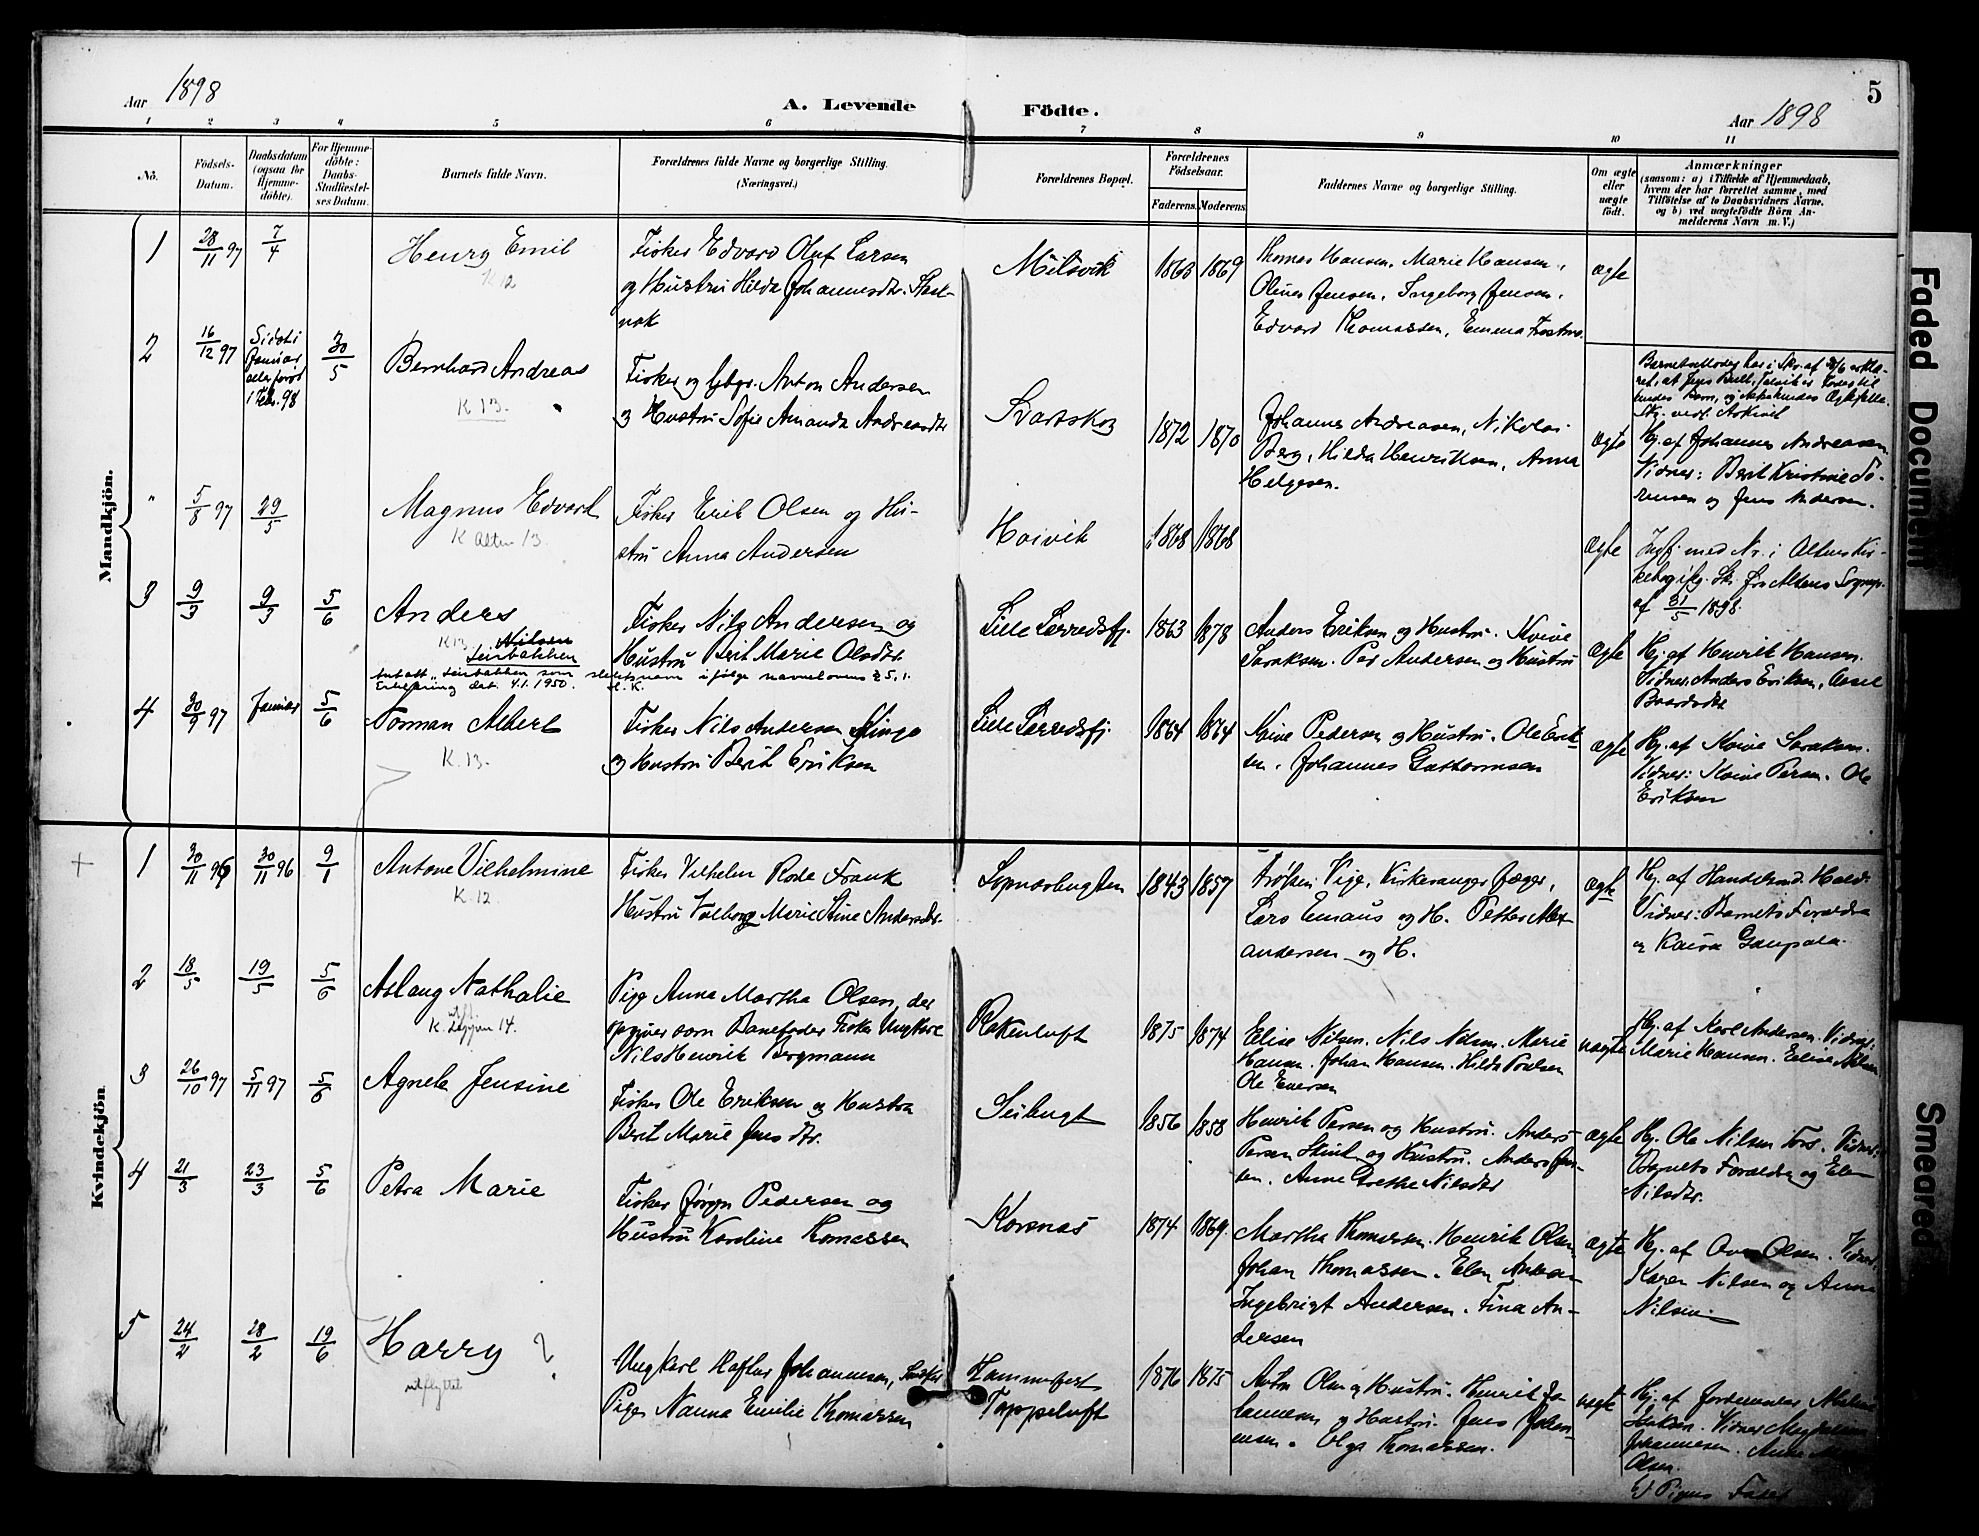 5
Aar 1898
A. Levende Födte.
Aar 1898
1 2 3 4 5 6 7 8 9 10 11
No.
Födsels-
Datum.
Daabsdatum
(ogsaa for
Hjemme-
döbte).
For Hjemme-
döbte:
Daabs-
Stadfæstel-
ses Datum.
Barnets fulde Navn.
Forældrenes fulde Navne og borgerlige Stilling.
(Næringsvei.)
Forældrenes Bopæl.
Forældrenes
Födselsaar.
Faderens. Moderens.
Faddernes Navne og borgerlige Stilling.
Om ægte
eller
uægte
födt.
Anmærkninger
(saasom: a) i Tilfælde af Hjemmedaab,
hvem der har forrettet samme, med
Tilföielse af to Daabsvidners Navne,
og b) ved uægtefödte Börn An-
melderens Navn m. V.)
Mandkjön.
1 28/11 97 7/4 Henry Emil
K 12
Fisker Edvard Oluf Larsen
og Hustru Hilda Johannesdtr.
Milsvik 1863 1869
Thomas Hansen, Marie Hansen,
Oliver Jensen, Ingeborg Jensen,
Edvard Thomassen, Emma
ægte
2 16/12 97
Sidst i
Januar
eller först
i Febr. 98
30/5
Bernhard Andreas
K 13.
Fisker og Anton Andersen
og Hustru Sofie Amanda Andreasdtr
Svartskog 1872 1870
Johannes Andreasen, Nikolai
Berg, Hilda Henriksen, Anna
Helgesen.
ægte
Hj. af Johannes Andreasen
Vidner: Berit Kristine Sö-
rensen og Jens Andersen.
" 5/8 97 29/5 Magnus Edvard
K Alten 13.
Fisker Erik Olsen og Hu-
stru Anna Andersen
Hoivik 1868 1868
ægte
Indf. med Nr. i Altens Kir-
kebog ifg. Skr. fra Altens Sognepr.
af 31/5 1898.
3 9/3 9/3 5/6 Anders
K 13. Nilsen
Leirbakken
Antatt „Leirbakken som slektsnavn ifølge navnelovens § 5, 1.
Erklæring dat. 4.1.1950.
Fisker Nils Andersen og
Hustru Berit Marie Olsdtr.
Lille Lerredsfj. 1863 1878
Anders Eriksen og Hustru. Koive
Saraksen. Per Andersen og Hustru
ægte
Hj. af Henrik Hansen.
Vidner: Anders Eriksen,
4 30/9 97 Januar 5/6 Norman Albert
K. 13.
Fisker Nils Andersen
og Hustru Berit Eriksen
Lille Lerredsfj. 1864 1864
Koive Pedersen og Hustru. Ole Erik-
sen. Johannes Guttormsen
ægte
Hj. af Koive Saraksen.
Vidner: Koive Persen. Ole
Eriksen
Kvindekjön
1 30/11 96 30/11 96 9/1 Antone Vilhelmine
K. 12
Fisker Vilhelm Rode Frank
Hustru Valborg Marie Stine Andersdtr.
Sopnesbugten 1843 1857
Frøken Vige, Kirkesanger Jæger,
Lars Emaus og H. Petter Alex-
andersen og H.
ægte
Hj. af Handelsmd. Hald.
Vidner: Barnets Forældre
og Kaisa Gaupala.
2 18/5 19/5 5/6 Aslaug Nathalie
utfl.
K. Loppen 14.
Pige Anna Martha Olsen, der
opgiver som Barnefader Fisker Ungkarl
Nils Henrik Bergmann
Rakenluft 1875 1874
Elise Nilsen. Nils Nilsen. Marie
Hansen. Johan Hansen. Hilda Poulsen
Ole Eversen
uægte
Hj. af Karl Andersen. Vidner:
Marie Hansen. Elise Nilsen
3 26/10 97 5/11 97 5/6 Agnete Jensine
Fisker Ole Eriksen og Hustru
Berit Marie Jensdtr.
Seibugt 1856 1858
Henrik Persen og Hustru. Anders
Persen og Hustru. Anders Jen-
sen. Anne Grethe Nilsdtr
ægte
Hj. Ole Nilsen Fors. Vidner:
Barnets Forældre og Elen
Nilsdtr.
4 21/3 23/3 5/6 Petra Marie
Fisker Jørgen Pedersen og
Hustru Karoline Thomassen
Korsnæs 1874 1869.
Martha Thomassen. Henrik Olsen
Johan Thomassen. Elen
Ingebrigt Andersen. Tina An-
dersen
ægte
Hj. af Olsen. Vidner:
Karen Nilsen og Anna
Nilsen.
5 24/2 28/2 19/6 Harry ?
utflyttet
Ungkarl Haftor Johannesen,
Pige Nanna Emilie Thomassen
Hammerfest
Toppeluft
1876 1875
Anton Olsen og Hustru. Henrik Jo-
hannesen og Hustru. Jens Johan-
nesen. Olga Thomassen.
uægte
Hj. af Jordemoder
Vidner:
Johannesen.
Olsen.
Pigens Fader
Faded Document
Smeared